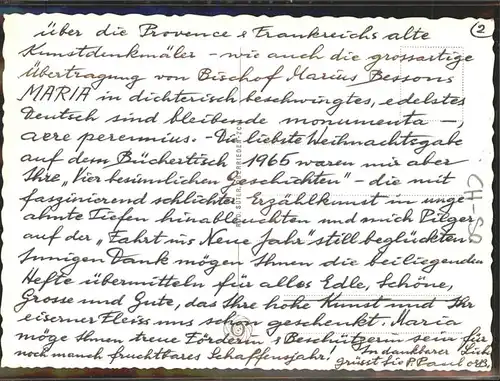 ②
über die Provence & Frankreichs alte
Kunstdenkmäler - wie auch die grossartige
Übertragung von Bischof Marius Bessons
MARIA in dichterisch beschwingtes, edelstes
Deutsch sind bleibende monumenta -
aere perennius. - Die liebste Weihnachtsgabe
auf dem Büchertisch 1965 waren mir aber
Ihre „Vier besinnlichen Geschichten" - die mit
faszinierend schlichter Erzählkunst in unge
ahnte Tiefen hinableuchten und mich Pilger
auf der „Fahrt ins Neue Jahr" still beglückten
Innigen Dank mögen Ihnen die beiliegenden
Hefte übermitteln für alles Edle, Schöne,
Grosse und Gute, das Ihre hohe Kunst und Ihr
eiserner Fleiss uns schon geschenkt. Maria
möge Ihnen treue Förderin & Beschützerin sein für
noch manch fruchtbares Schaffensjahr! In dankbarer Liebe
grüsst Sie P. Paul